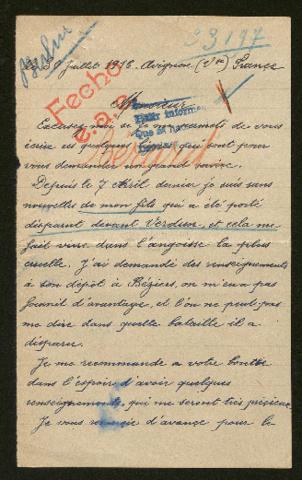 93197
9 Juillet 1916 Avignon (Vse) France
Fecho
Monsieur
Excusez-moi si je me permets de vous
écrire ces quelques lignes qui sont pour
vous demander un grand service.
Depuis le 7 Avril dernier je suis sans
nouvelles de mon fils qui a été porté
disparut devant Verdun, et cela me
fait vivre dans l'angoisse la plus
cruelle. J'ai demandé des renseignements
à son dépôt à Béziers, on m'en a pas
fourni d'avantage, et l'on ne peut pas
me dire dans quelle bataille il a
disparu.
Je me recommande a votre bonté
dans l'espoir d'avoir quelques
renseignements, qui me seront très précieux
Je vous remercie d'avance pour le